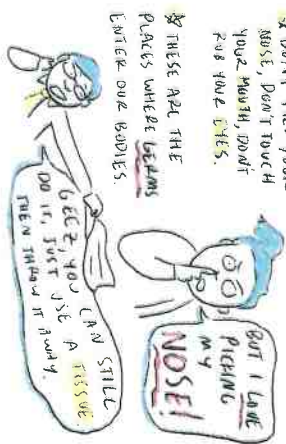 ☆ DON'T PICK YOUR
NOSE, DON'T TOUCH
YOUR MOUTH DON'T
RUB YOUR EYES.
☆ THESE ARE THE
PLACES WHERE GERMS
ENTER OUR BODIES.
BUT I LOVE
PICKING
MY
NOSE!
GEEZ, YOU CAN STILL
DO IT, JUST USE A TISSUE.
THEN THROW IT AWAY.